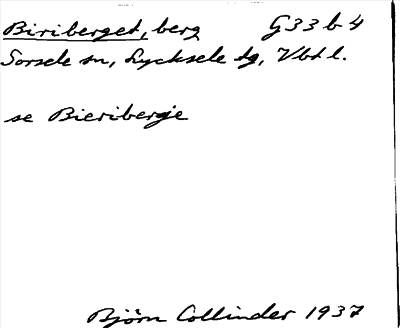 Biriberget, berg G33 b 4
Sorsele sn, Lycksele tg, Vbt l.
se Bieriberġe
Björn Collinder 1937